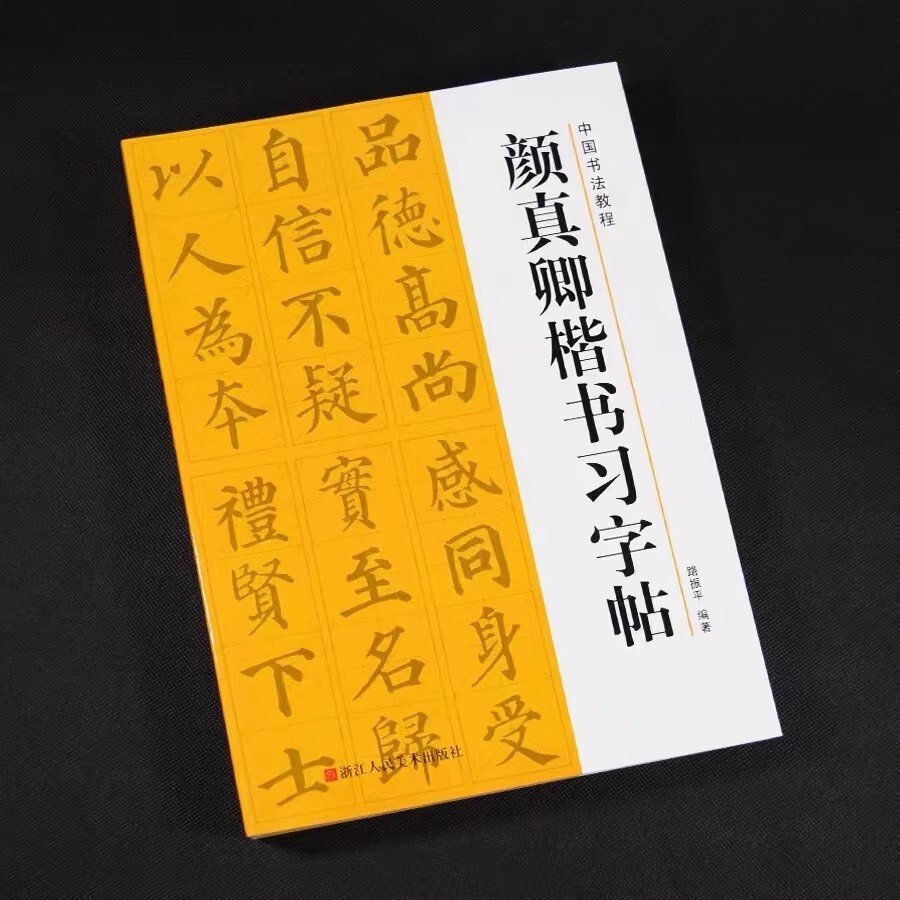 中国书法教程
颜真卿楷书习字帖
路振平 编著
品德高尚
感同身受
自信不疑
實至名歸
以人為本
禮賢下士
浙江人民美术出版社